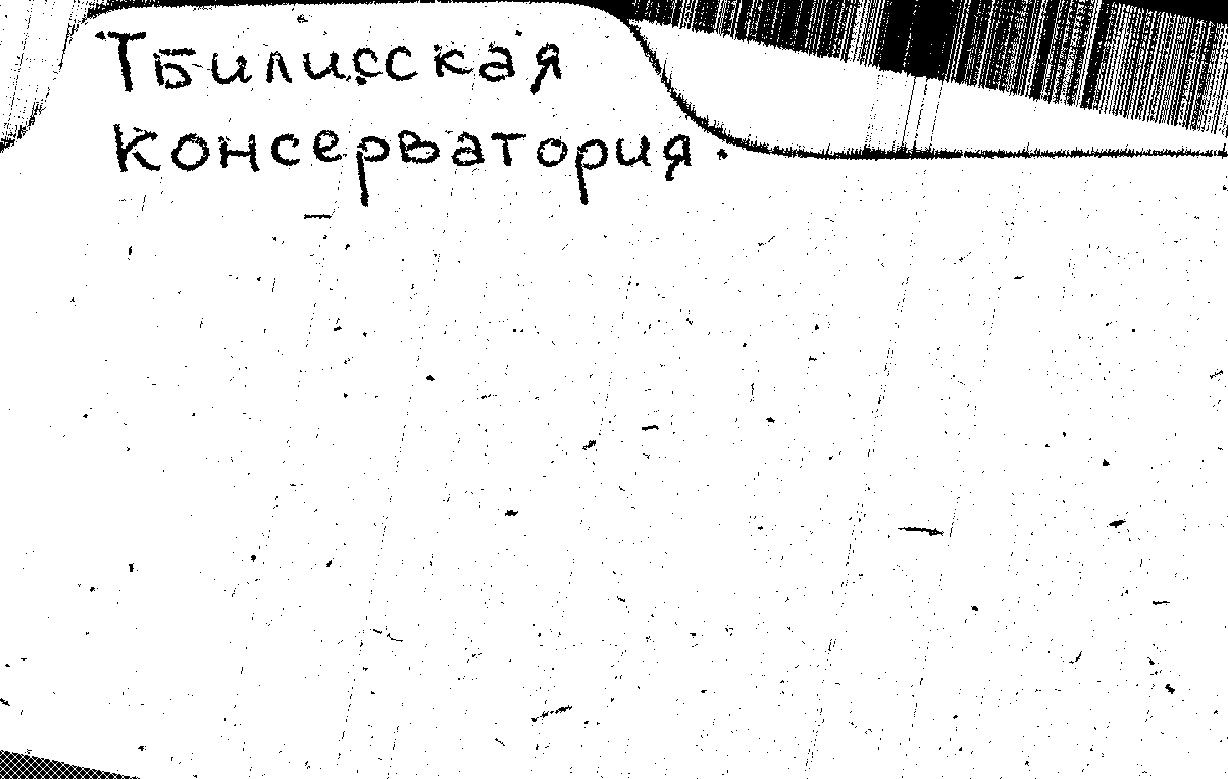 Тбилисская
консерватория.